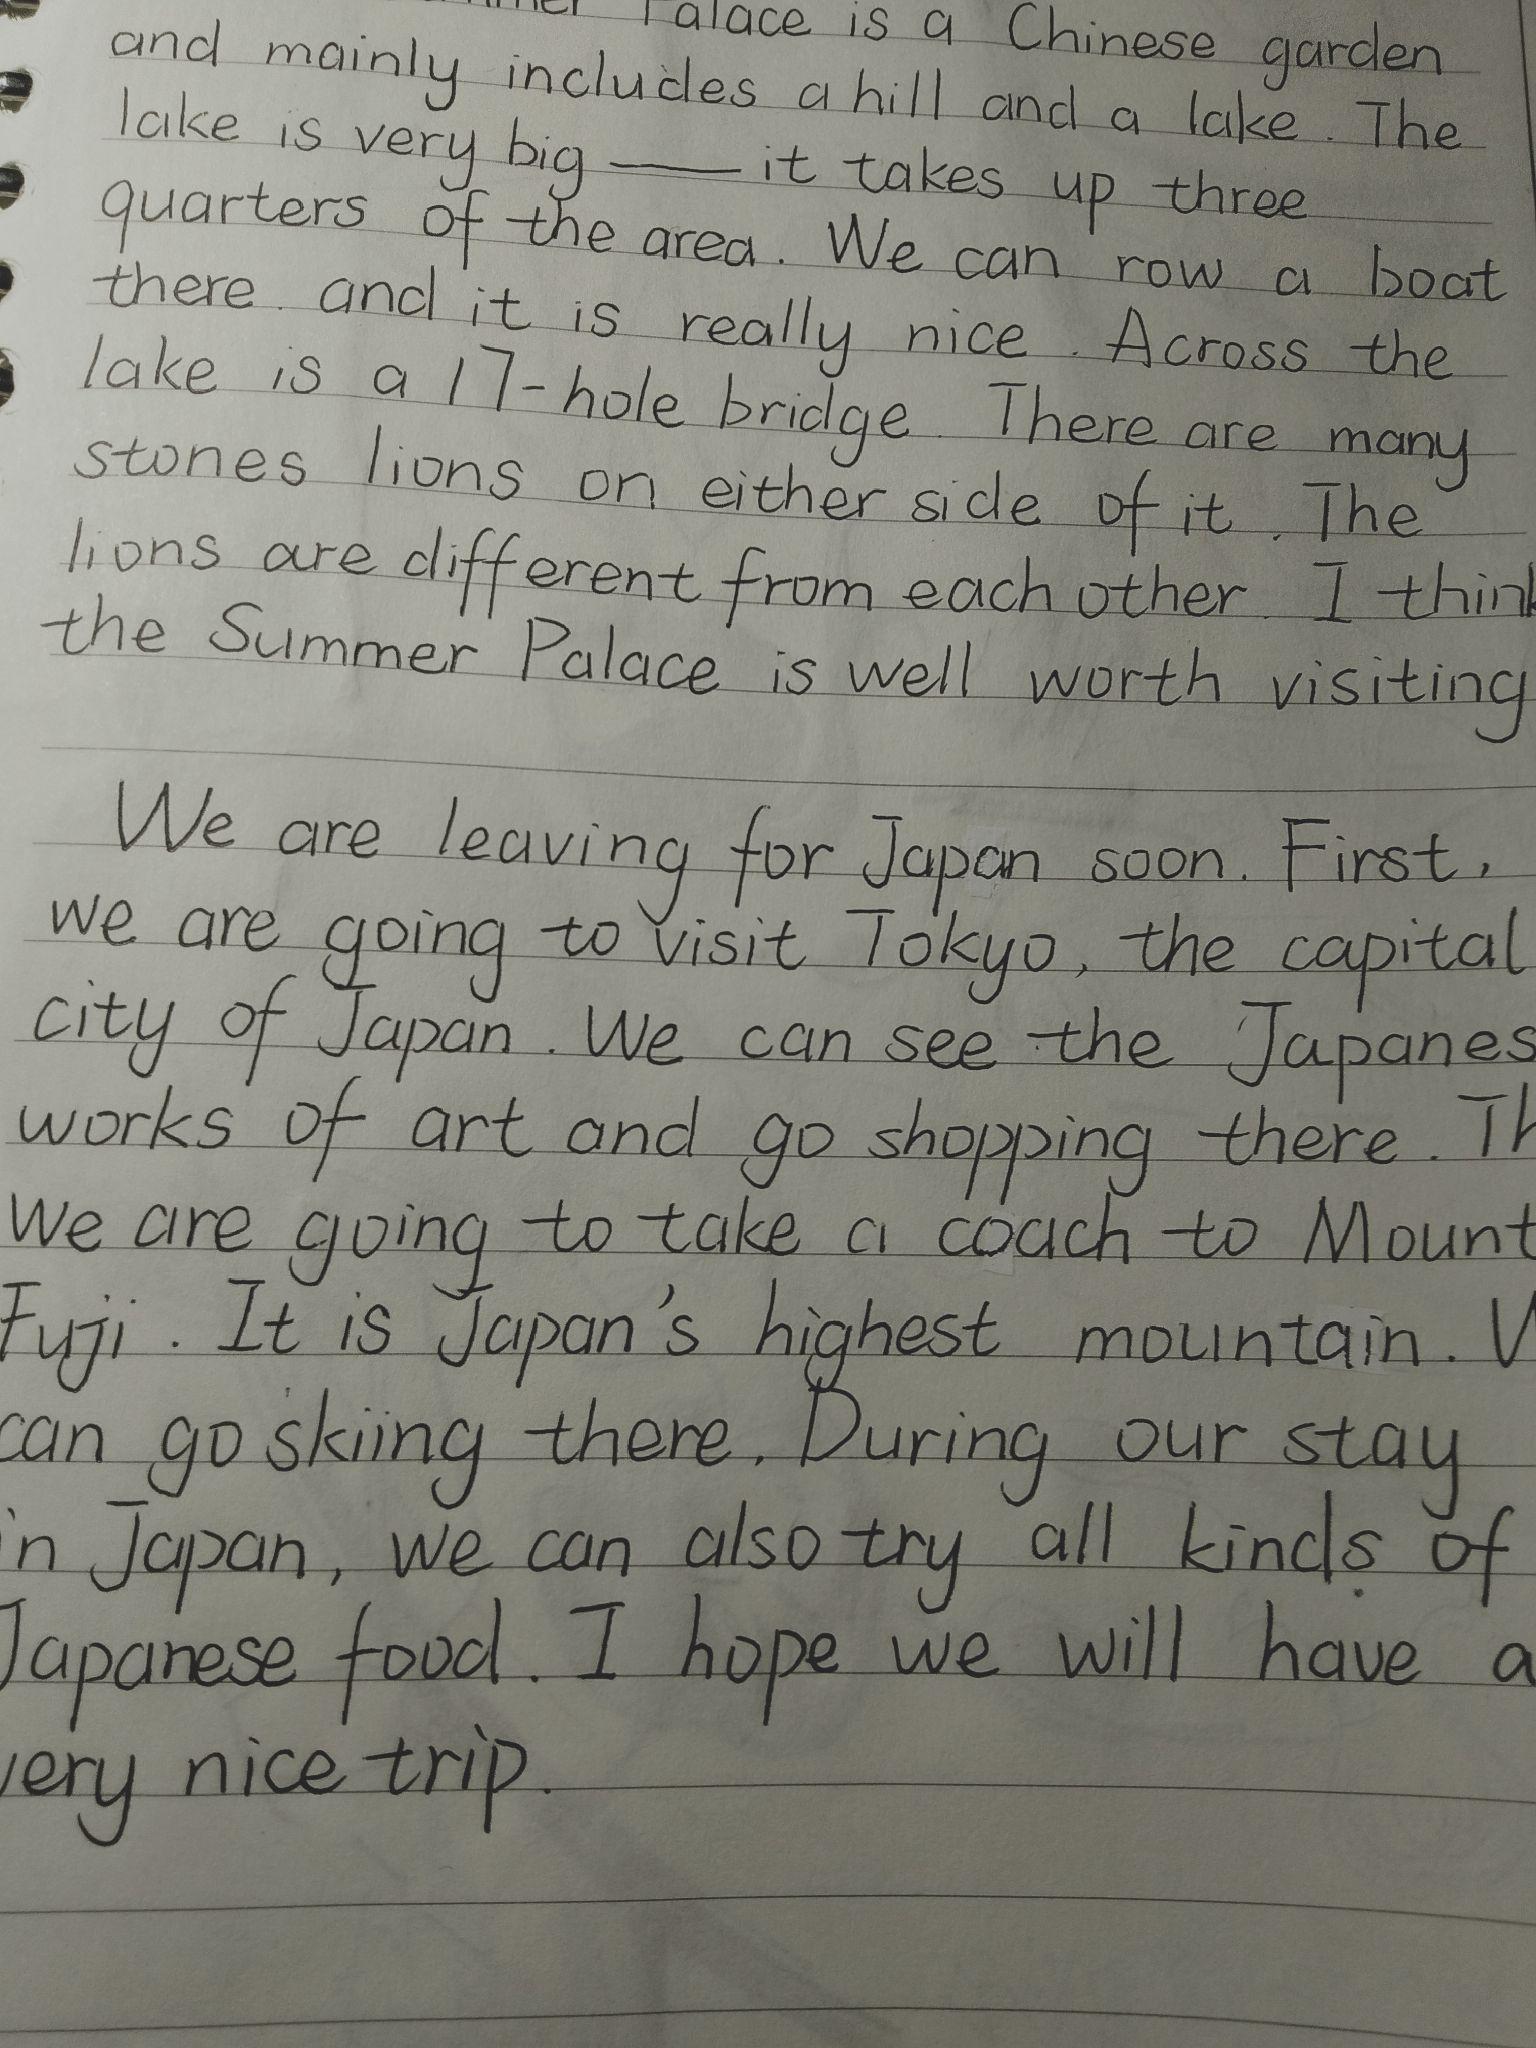 Palace is a Chinese garden
and mainly includes a hill and a lake. The
lake is very big — it takes up three
quarters of the area. We can row a boat
there and it is really nice. Across the
lake is a 17-hole bridge. There are many
stones lions on either side of it. The
lions are different from each other. I think
the Summer Palace is well worth visiting
We are leaving for Japan soon. First,
we are going to visit Tokyo, the capital
city of Japan. We can see the Japanes
works of art and go shopping there. Th
we are going to take a coach to Mount
Fuji. It is Japan's highest mountain. W
can go skiing there. During our stay
in Japan, we can also try all kinds of
Japanese food. I hope we will have a
very nice trip.